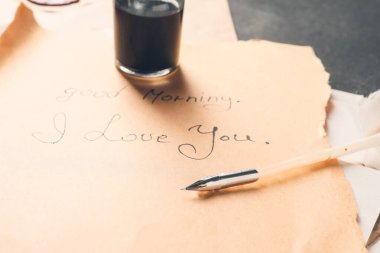 good Morning.
I Love You.